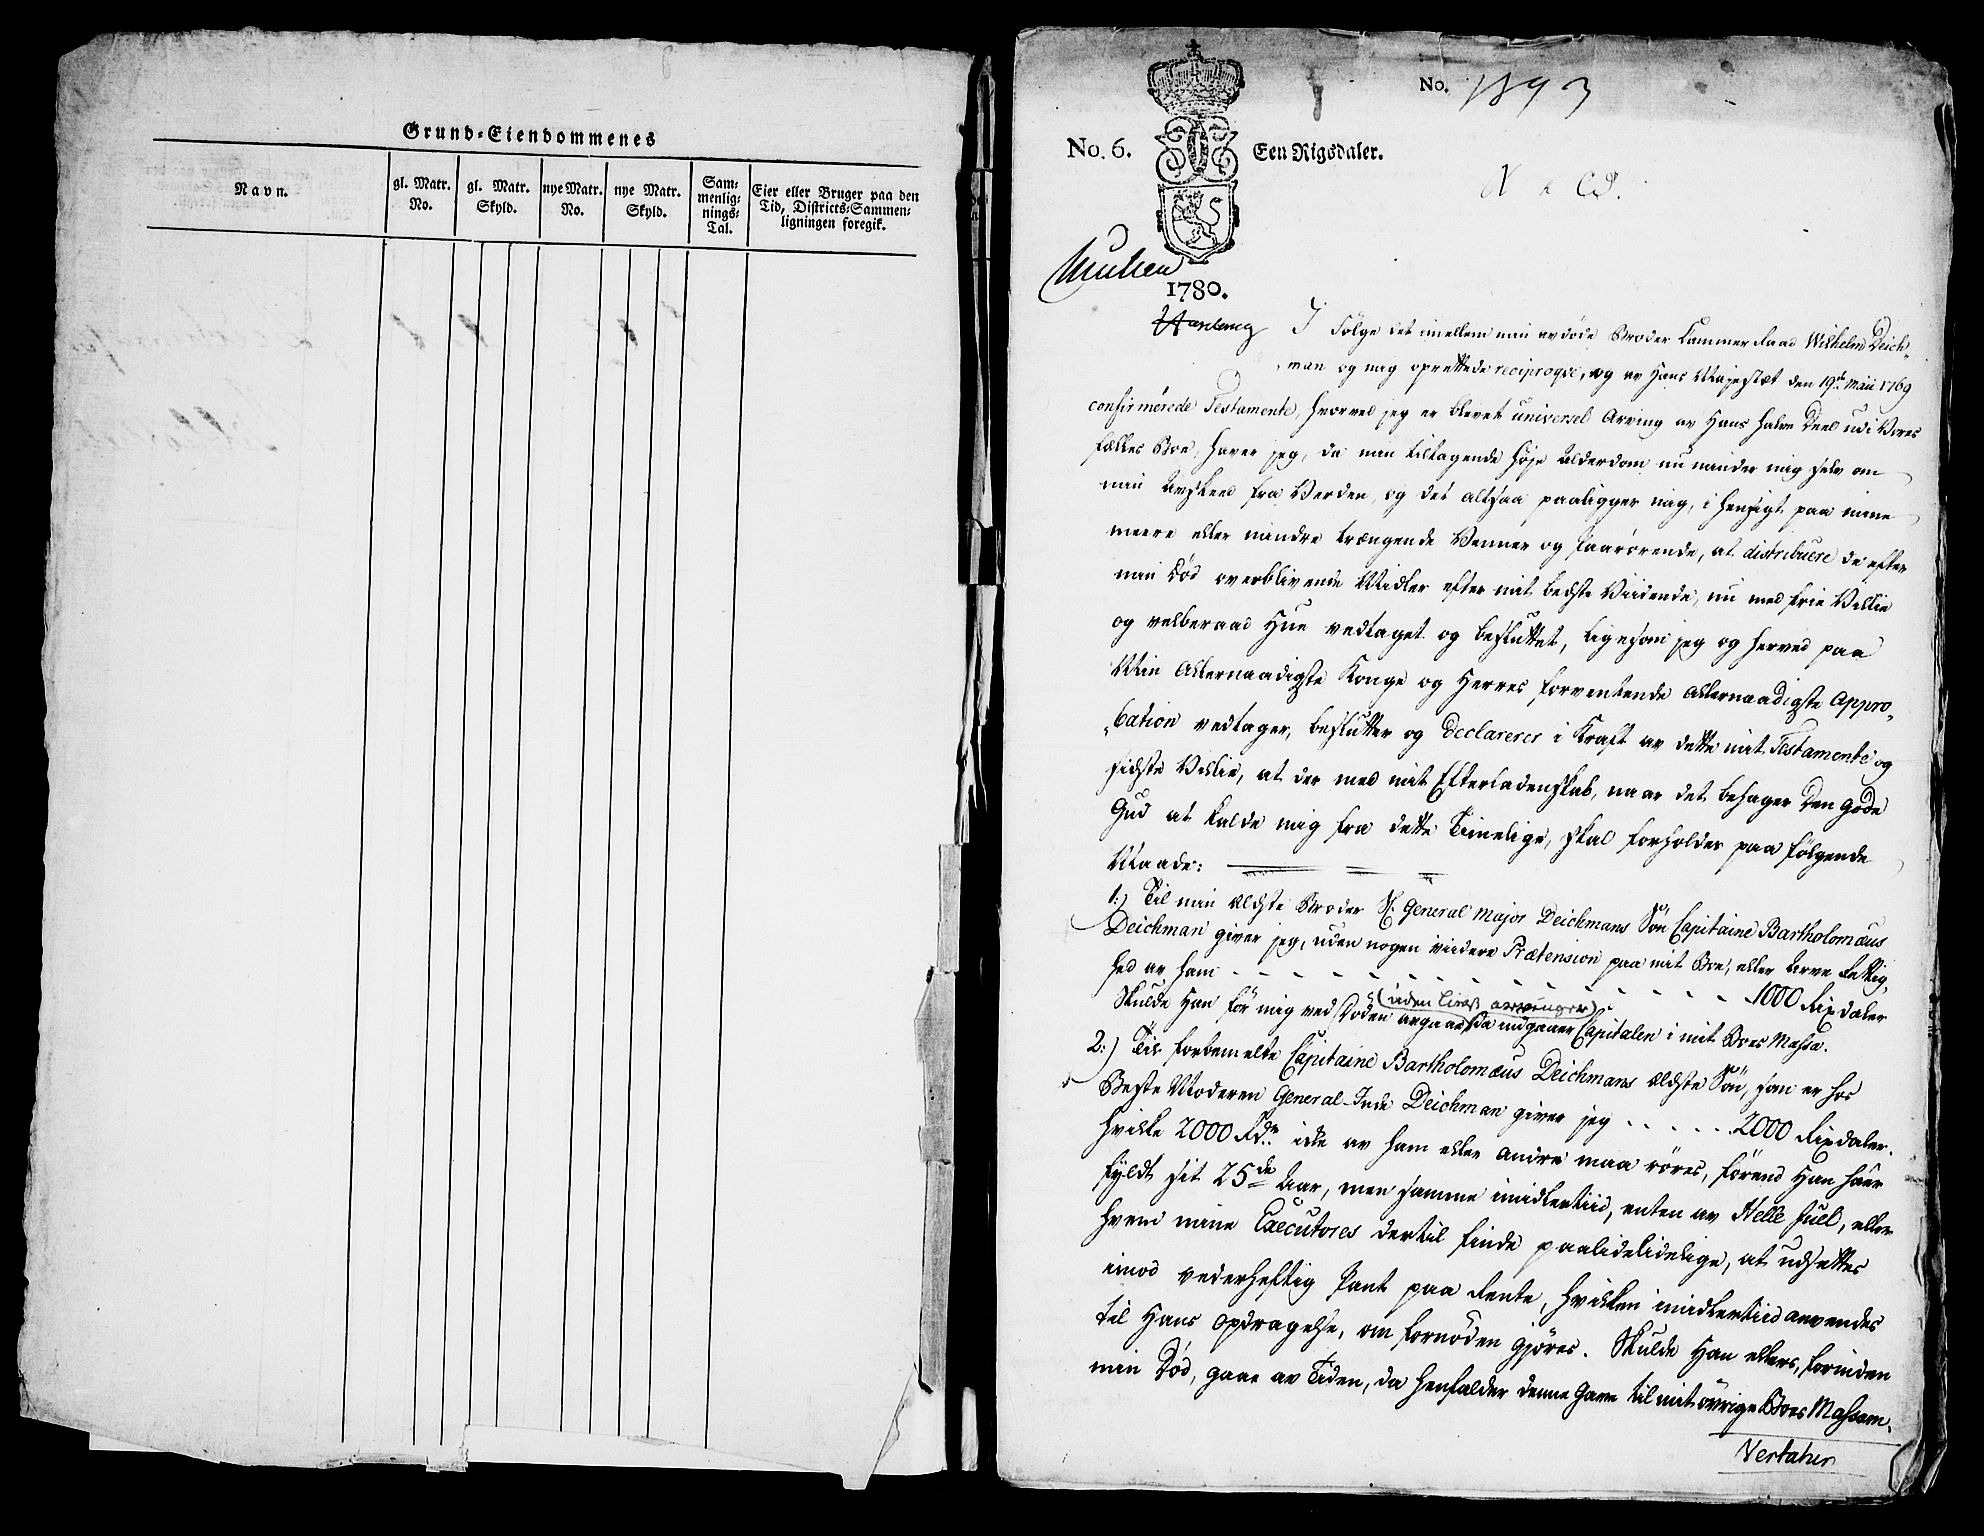 Grund-Eiendommenes
Navn.
gl. Matr. No.
gl. Matr. Skyld.
nye Matr. No.
nye Matr. Skyld.
Sam-
menlig-
nings-
Tal.
Eier eller Bruger paa den
Tid, Districts-Sammen-
ligningen foregik.
No. 1893
No. 6.
Een Rigsdaler.
1780.
I Følge det imellem min avdøde Broder Kammer Raad Wilhelm Deich-
man og mig oprettede reciproqve, og av Hans Majestæt den 19d Maii 1769
confirmerede Testamente, hvorved jeg er blevet universel Arving av Hans halve Deel udi Vores
fælles Boe, haver jeg, da min tiltagende høje Alderdom nu minder mig selv om
min Avskeed fra Verden, og det altsaa paaligger mig, i hensigt paa mine
meere eller mindre trængende Venner og Paarørende, at distribuere de efter
min Død overblivende Midler efter mit bedste Vidende, nu med frie Villie
og velberaad Hue vedtaget og besluttet, ligesom jeg og herved paa
Min Allernaadigste Konge og Herres forventende allernaadigste Appro-
bation vedtager, beslutter og Declarerer i Kraft av dette mit Testamente og
sidste Villie, at der med mit Efterladenskab, naar det behager Den gode
Gud at kalde mig fra dette Timelige, skal forholdes paa følgende
Maade:
1:) Til min ældste Broder Sl. General Major Deichmans Søn Capitaine Bartholomæus
Deichman giver jeg, uden nogen viidere Prætension paa mit Boe, eller Arve Rettig-
hed av ham - - - - - - - - 1000 Rixdaler
(uden Livs arvinger)
Skulde Han før mig ved Døden avgaae, da indgaaer Capitalen i mit Boes Massa.
2:) Til forbemelte Capitaine Bartholomæus Deichmans ældste Søn, som er hos
Beste Moderen General-Inde Deichman giver jeg . . . . . . 2000 Rixdaler.
hvilke 2000 Rdr. ikke av ham eller andre maa røres, førend Han haver
fyldt sit 25de Aar, men samme imidlertiid, enten av Helle Juel, eller
hvem mine Executores dertil finde paalidelidelige, at udsættes
imod vederheftig Pant paa Rente, hvilken imidlertiid anvendes
til Hans Opdragelse, om fornøden gjøres. Skulde Han ellers, forinden
min Død, gaae av Tiden, da henfalder denne Gave til mit øvrige Boes Massam.